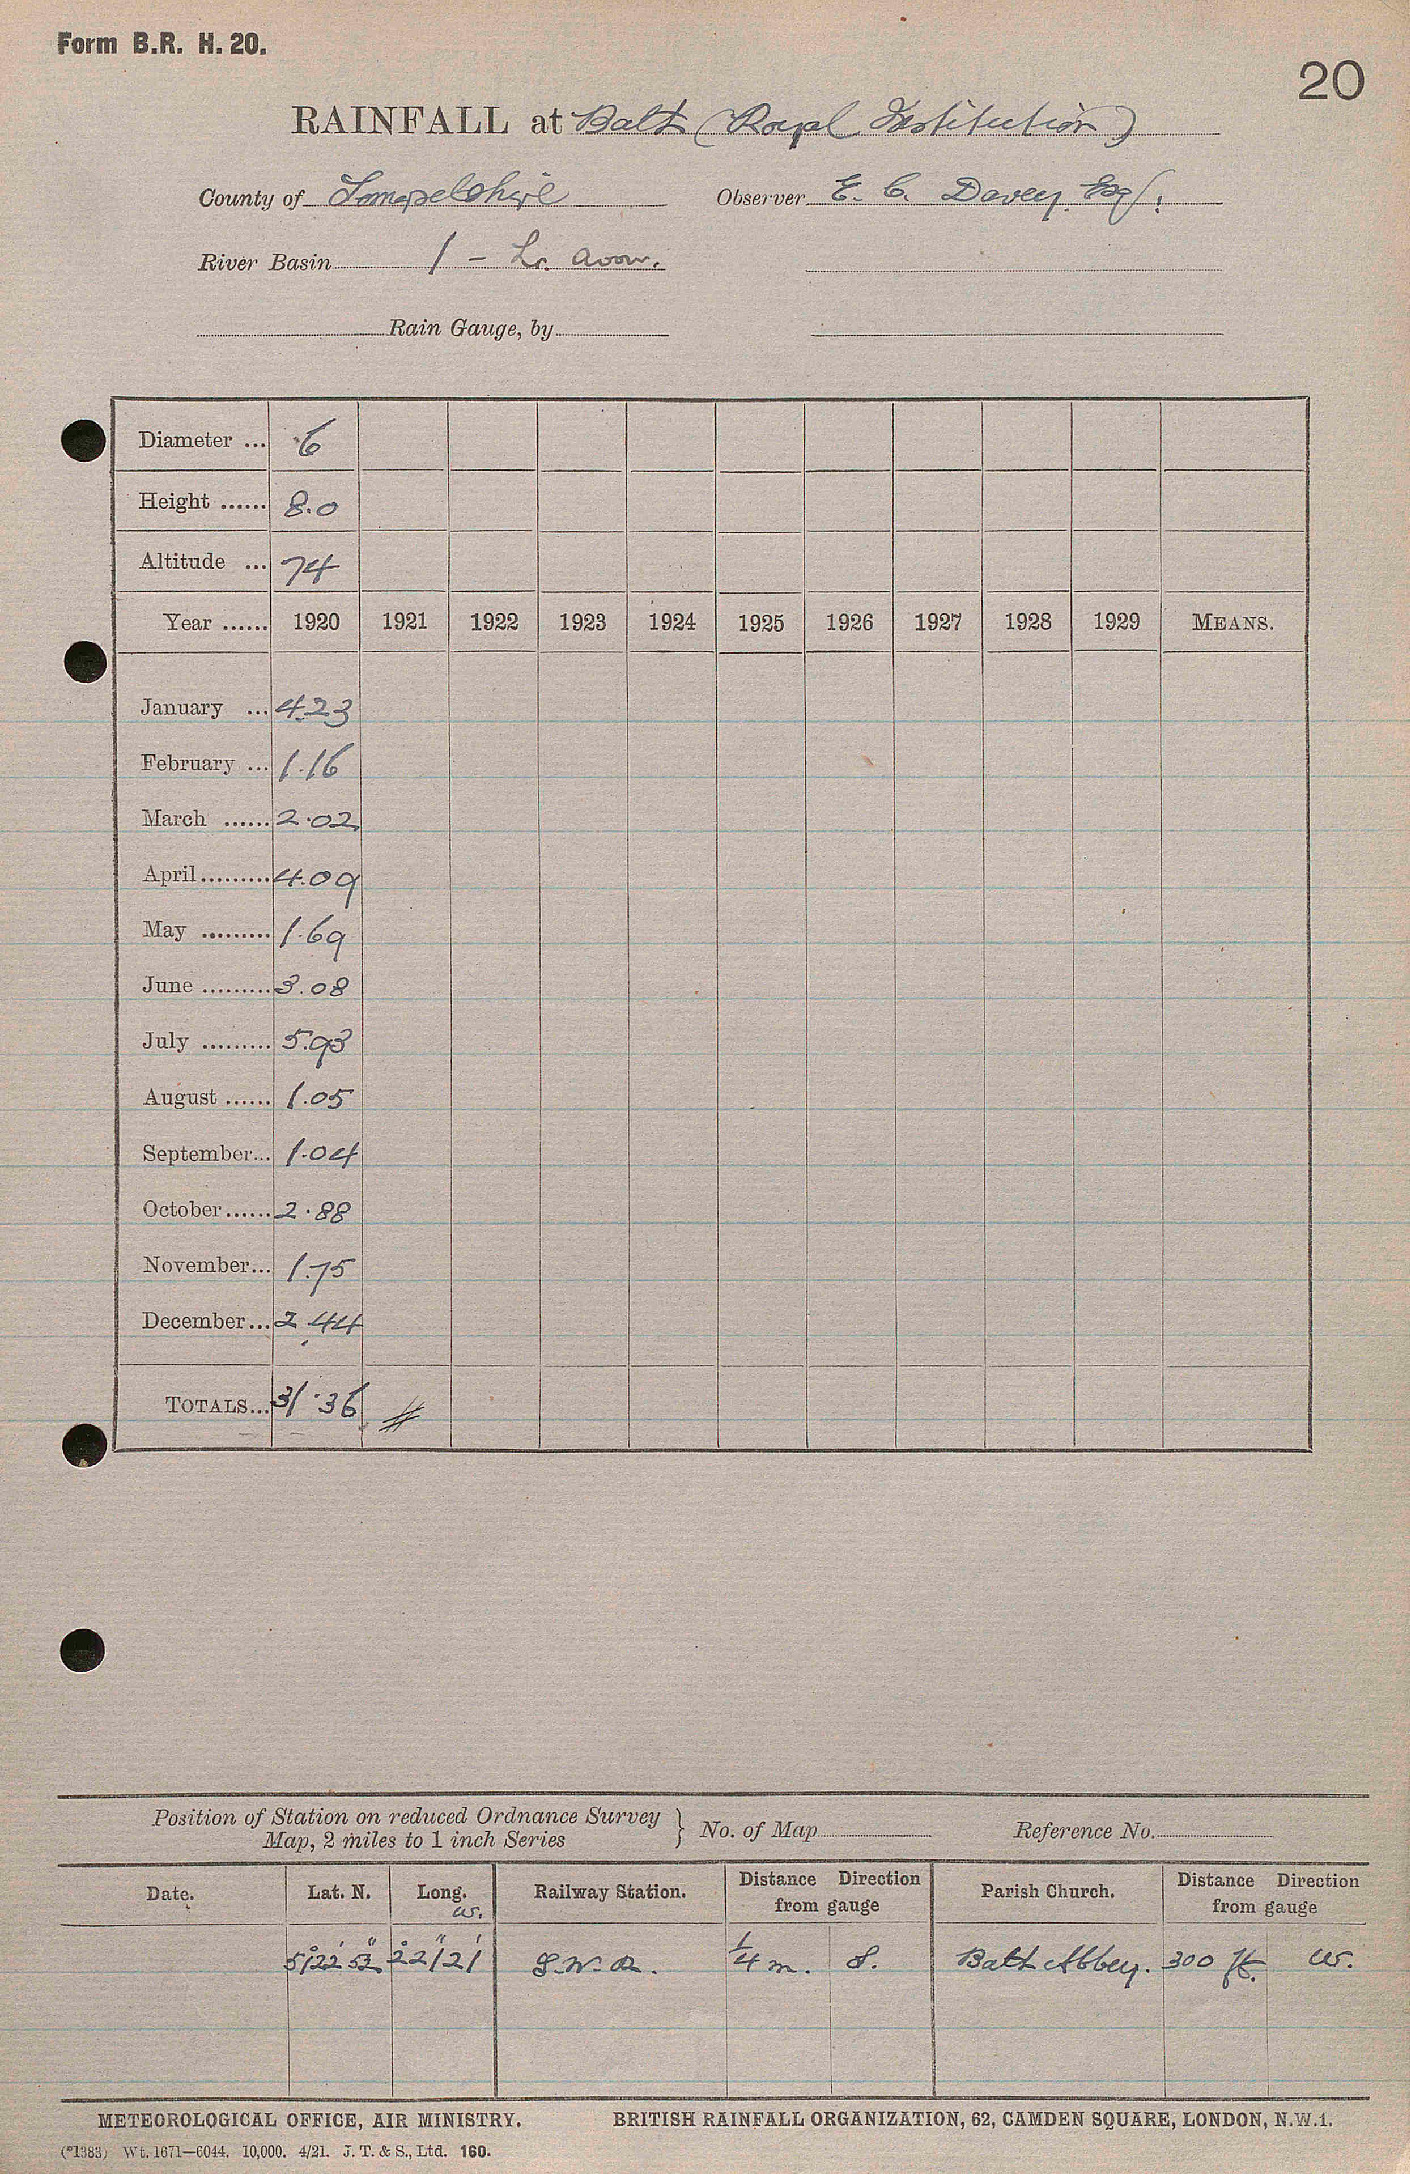 Form B.R. H. 20.
20
RAINFALL at Bath (Royal Institution)
County of Somersetshire Observer E. C. Davey Esq.
River Basin 1 - Lr. Avon.
Rain Gauge, by
Diameter ... 6
Height ...... 8.0
Altitude ... 74
Year ...... 1920 1921 1922 1923 1924 1925 1926 1927 1928 1929 MEANS.
January ... 4.23
February ... 1.16
March ...... 2.02
April ......... 4.09
May ......... 1.69
June ......... 3.08
July ......... 5.93
August ...... 1.05
September... 1.04
October...... 2.88
November... 1.75
December... 2.44
TOTALS... 31.36
Position of Station on reduced Ordnance Survey
Map, 2 miles to 1 inch Series } No. of Map Reference No.
Date. Lat. N. Long. W. Railway Station. Distance Direction from gauge Parish Church. Distance Direction from gauge
51° 22' 52" 2° 21' 21" G.W.R. 1/4 m. S. Bath Abbey. 300 ft. W.
METEOROLOGICAL OFFICE, AIR MINISTRY. BRITISH RAINFALL ORGANIZATION, 62, CAMDEN SQUARE, LONDON, N.W.1.
(*1383) Wt. 1671—6044. 10,000. 4/21. J. T. & S., Ltd. 160.